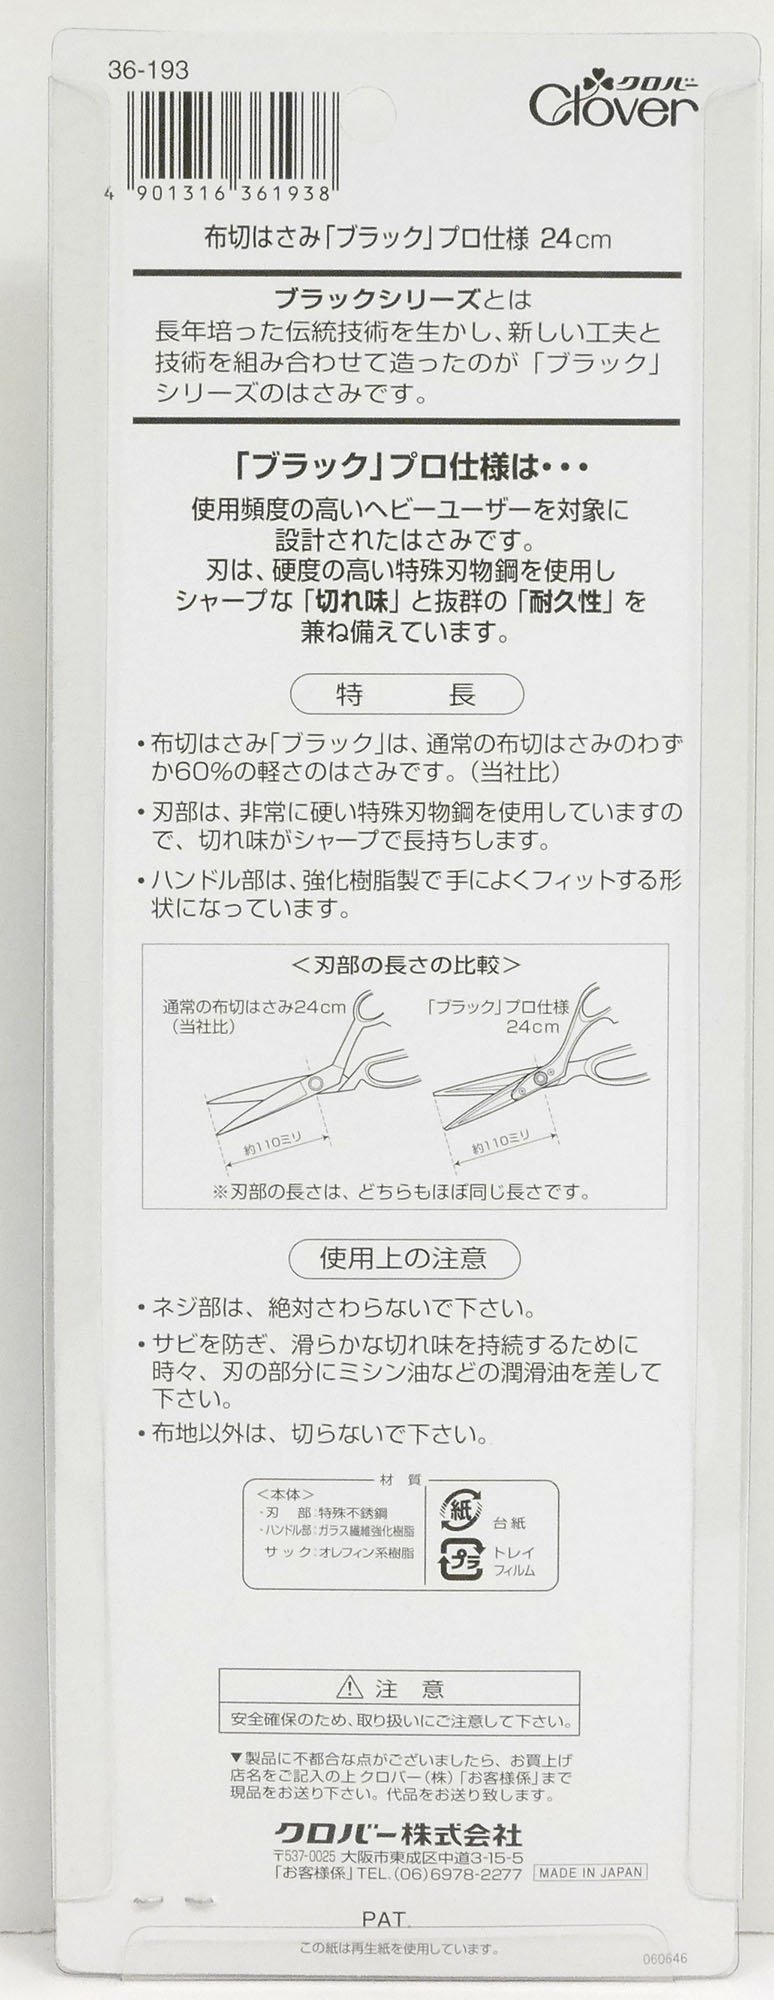 36-193
クロバー
Clover
4 901316 361938
布切はさみ「ブラック」プロ仕様 24cm
ブラックシリーズとは
長年培った伝統技術を生かし、新しい工夫と
技術を組み合わせて造ったのが「ブラック」
シリーズのはさみです。
「ブラック」プロ仕様は・・・
使用頻度の高いヘビーユーザーを対象に
設計されたはさみです。
刃は、硬度の高い特殊刃物鋼を使用し
シャープな「切れ味」と抜群の「耐久性」を
兼ね備えています。
特 長
・布切はさみ「ブラック」は、通常の布切はさみのわず
か60%の軽さのはさみです。(当社比)
・刃部は、非常に硬い特殊刃物鋼を使用していますの
で、切れ味がシャープで長持ちします。
・ハンドル部は、強化樹脂製で手によくフィットする形
状になっています。
＜刃部の長さの比較＞
通常の布切はさみ24cm
(当社比)
「ブラック」プロ仕様
24cm
約110ミリ
約110ミリ
※刃部の長さは、どちらもほぼ同じ長さです。
使用上の注意
・ネジ部は、絶対さわらないで下さい。
・サビを防ぎ、滑らかな切れ味を持続するために
時々、刃の部分にミシン油などの潤滑油を差して
下さい。
・布地以外は、切らないで下さい。
材 質
＜本体＞
・刃 部:特殊不銹鋼
・ハンドル部:ガラス繊維強化樹脂
サック:オレフィン系樹脂
紙
台紙
プラ
トレイ
フィルム
⚠ 注 意
安全確保のため、取り扱いにご注意して下さい。
▼製品に不都合な点がございましたら、お買上げ
店名をご記入の上クロバー(株)「お客様係」まで
現品をお送り下さい。代品をお送り致します。
クロバー株式会社
〒537-0025 大阪市東成区中道3-15-5
「お客様係」TEL.(06)6978-2277
MADE IN JAPAN
PAT.
この紙は再生紙を使用しています。
060646